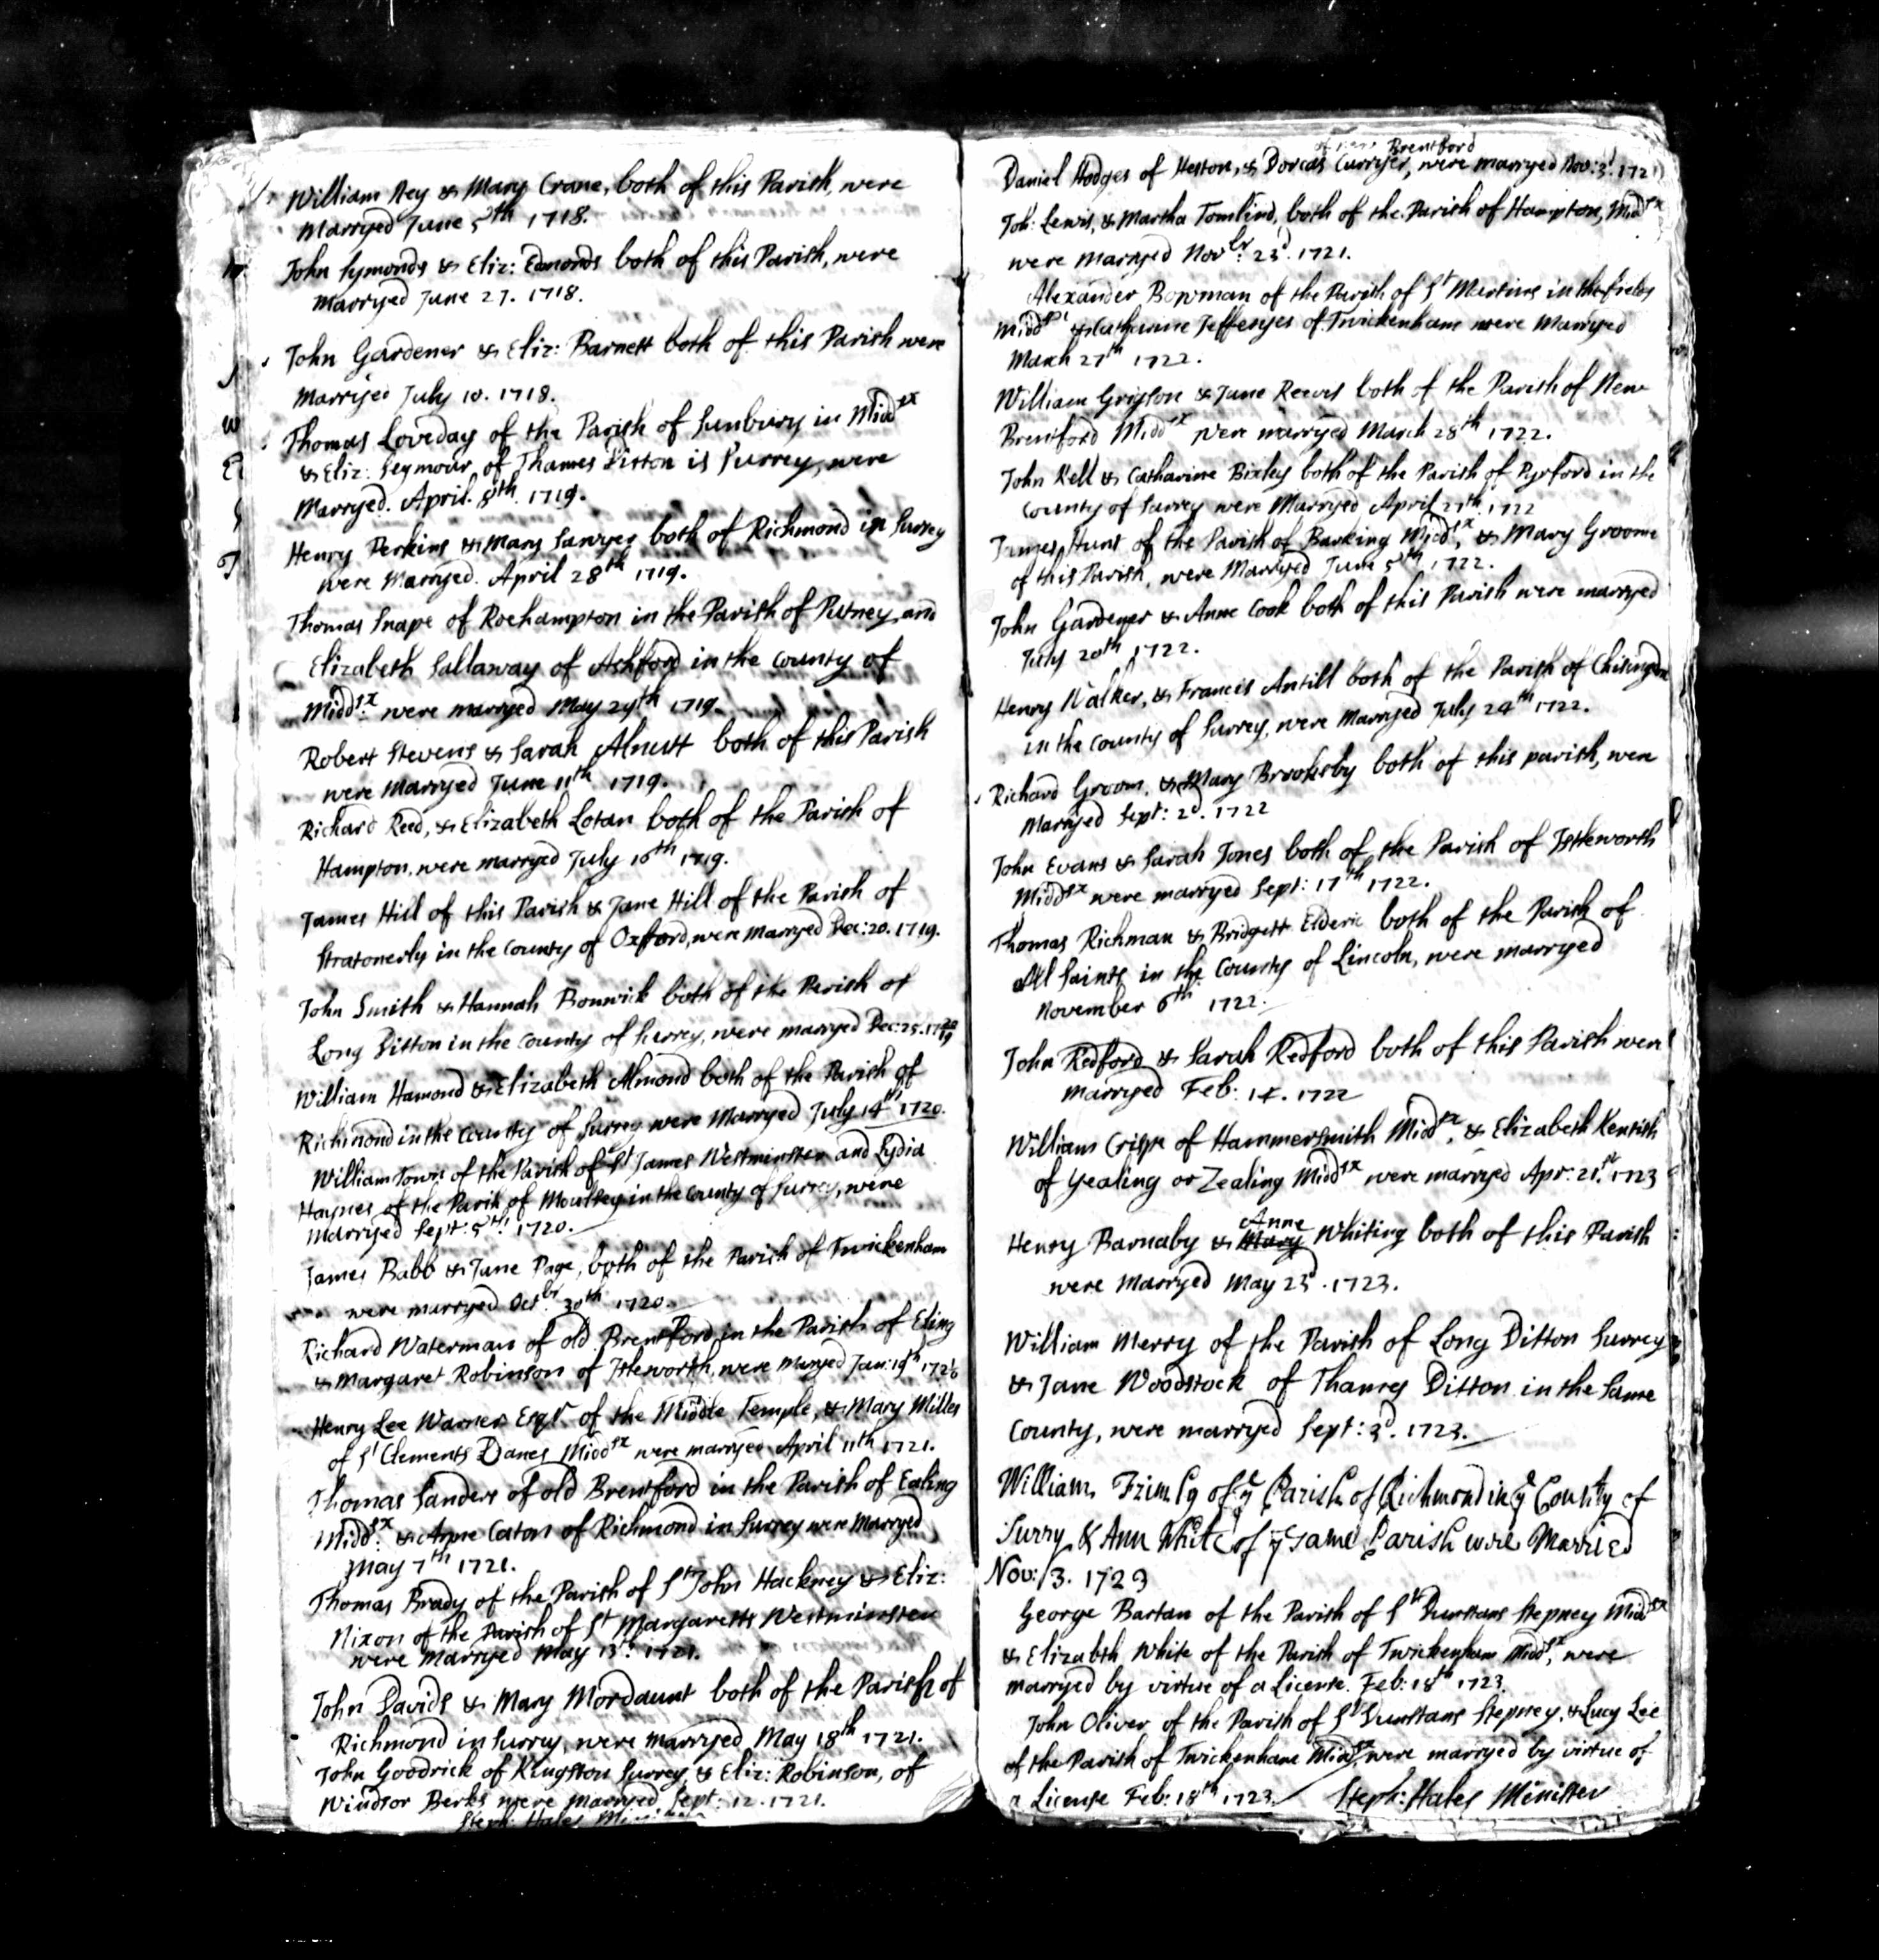 William Ney & Mary Crane, both of this Parish, were
Marryed June 5th 1718.
John Symonds & Eliz: Edmonds both of this Parish, were
Marryed June 27. 1718.
John Gardener & Eliz: Barnett both of this Parish were
Marryed July 10. 1718.
Thomas Loveday of the Parish of Sunbury in Midd:sx
& Eliz: Seymour, of Thames Ditton is Surrey, were
Marryed. April. 8th. 1719.
Henry Perkins & Mary Sawyer both of Richmond in Surrey
were Marryed. April 28th 1719.
Thomas Snape of Roehampton in the Parish of Putney, and
Elizabeth Sallaway of Ashford in the County of
Midd:sx were marryed May 29th 1719.
Robert Stevens & Sarah Alnutt both of this Parish
were Marryed June 11th 1719.
Richard Reed, & Elizabeth Lotan both of the Parish of
Hampton, were marryed July 16th 1719.
James Hill of this Parish & Jane Hill of the Parish of
Stratonerly in the County of Oxfford, were Marryed Dec: 20. 1719.
John Smith & Hannah Bonwick both of the Parish of
Long Ditton in the County of Surrey, were marryed Dec: 25. 17
William Hamond & Elizabeth Almond both of the Parish of
Richmond in the County of Surrey were Marryed July 14th 1720.
William Town of the Parish of St James Westminster and Lydia
Haynes of the Parish of Moulsey in the County of Surrey, were
Marryed Sept: 5th 1720.
James Babb & Jane Page, both of the Parish of Twickenham
were marryed Octbr. 30th 1720.
Richard Waterman of old Brentford, in the Parish of Eling
& Margaret Robinson of Isteworth, were Marryed Jan: 19th 172
Henry Lee Warner Esqr. of the Middle Temple, & Mary Milles
of St Clements Danes Midd:sx were marryed April 11th 1721.
Thomas Sanders of old Brentford in the Parish of Ealing
Midd:sx & Anne Caton of Richmond in Surrey were Marryed
May 7th 1721.
Thomas Brady of the Parish of St John Hackney & Eliz:
Nixon of the Parish of St Margaretts Westminster
were Marryed May 13th. 1721.
John Davids & Mary Mordaunt both of the Parish of
Richmond in Surrey, were marryed May 18th 1721.
John Goodrick of Kingston Surrey & Eliz: Robinson, of
Windsor Berks were marryed Sept: 12. 1721.
Steph: Hales Minister
of new Brentford
Daniel Hodges of Heston, & Dorcas Curryer, were marryed Nov: 3d. 1721
Joh: Lewis, & Martha Tomlind, both of the Parish of Hampton, Middsx
were marryed Novbr: 23d. 1721.
Alexander Bowman of the Parish of St Martins in the fields
Middsx & Catharine Jefferyes of Twickenham were Marryed
March 27th 1722.
William Gryson & Jane Reeves both of the Parish of New
Brentford Middsx were marryed March 28th 1722.
John Kell & Catharine Bixley both of the Parish of Pyrford in the
County of Surrey were Marryed April 27th. 1722
James Hunt of the Parish of Barking Middsx, & Mary Groome
of this Parish, were Marryed June 5th 1722.
John Gardener & Anne Cook both of this Parish were marryed
July 20th 1722.
Henry Walker, & Francis Antill both of the Parish of
in the County of Surrey, were Marryed July 24th 1722.
Richard Groom, & Mary Brooksby both of this parish, were
Marryed Sept: 2d. 1722
John Evans & Sarah Jones both of the Parish of Istleworth
Middsx were marryed Sept: 17th 1722.
Thomas Richman & Bridgett Elderic both of the Parish of
All Saints in the County of Lincoln, were marryed
November 6th 1722.
John Redford & Sarah Redford both of this Parish were
marryed Feb: 14. 1722
William Crispe of Hammersmith Middsx, & Elizabeth Kentish
of Yealing or Zealing Middsx were marryed Apr: 21st. 1723
Anne
Henry Barnaby & Mary Whiting both of this Parish
were Marryed May 23d. 1723.
William Merry of the Parish of Long Ditton Surrey
& Jane Woodstock of Thames Ditton in the Same
County, were marryed Sept: 3d. 1723.
William Frimly of ye Parish of Richmond in ye County of
Surry & Ann White of ye same Parish were Married
Nov: 3. 1723
George Bartan of the Parish of St Dunstans Stepney Middsx
& Elizabth White of the Parish of Twickenham Middsx, were
marryed by virtue of a License. Feb: 18th 1723
John Oliver of the Parish of St Dunstans Stepney, & Lucy Lee
of the Parish of Twickenham Middsx, were marryed by virtue of
a License Feb: 18th 1723 Steph: Hales Minister